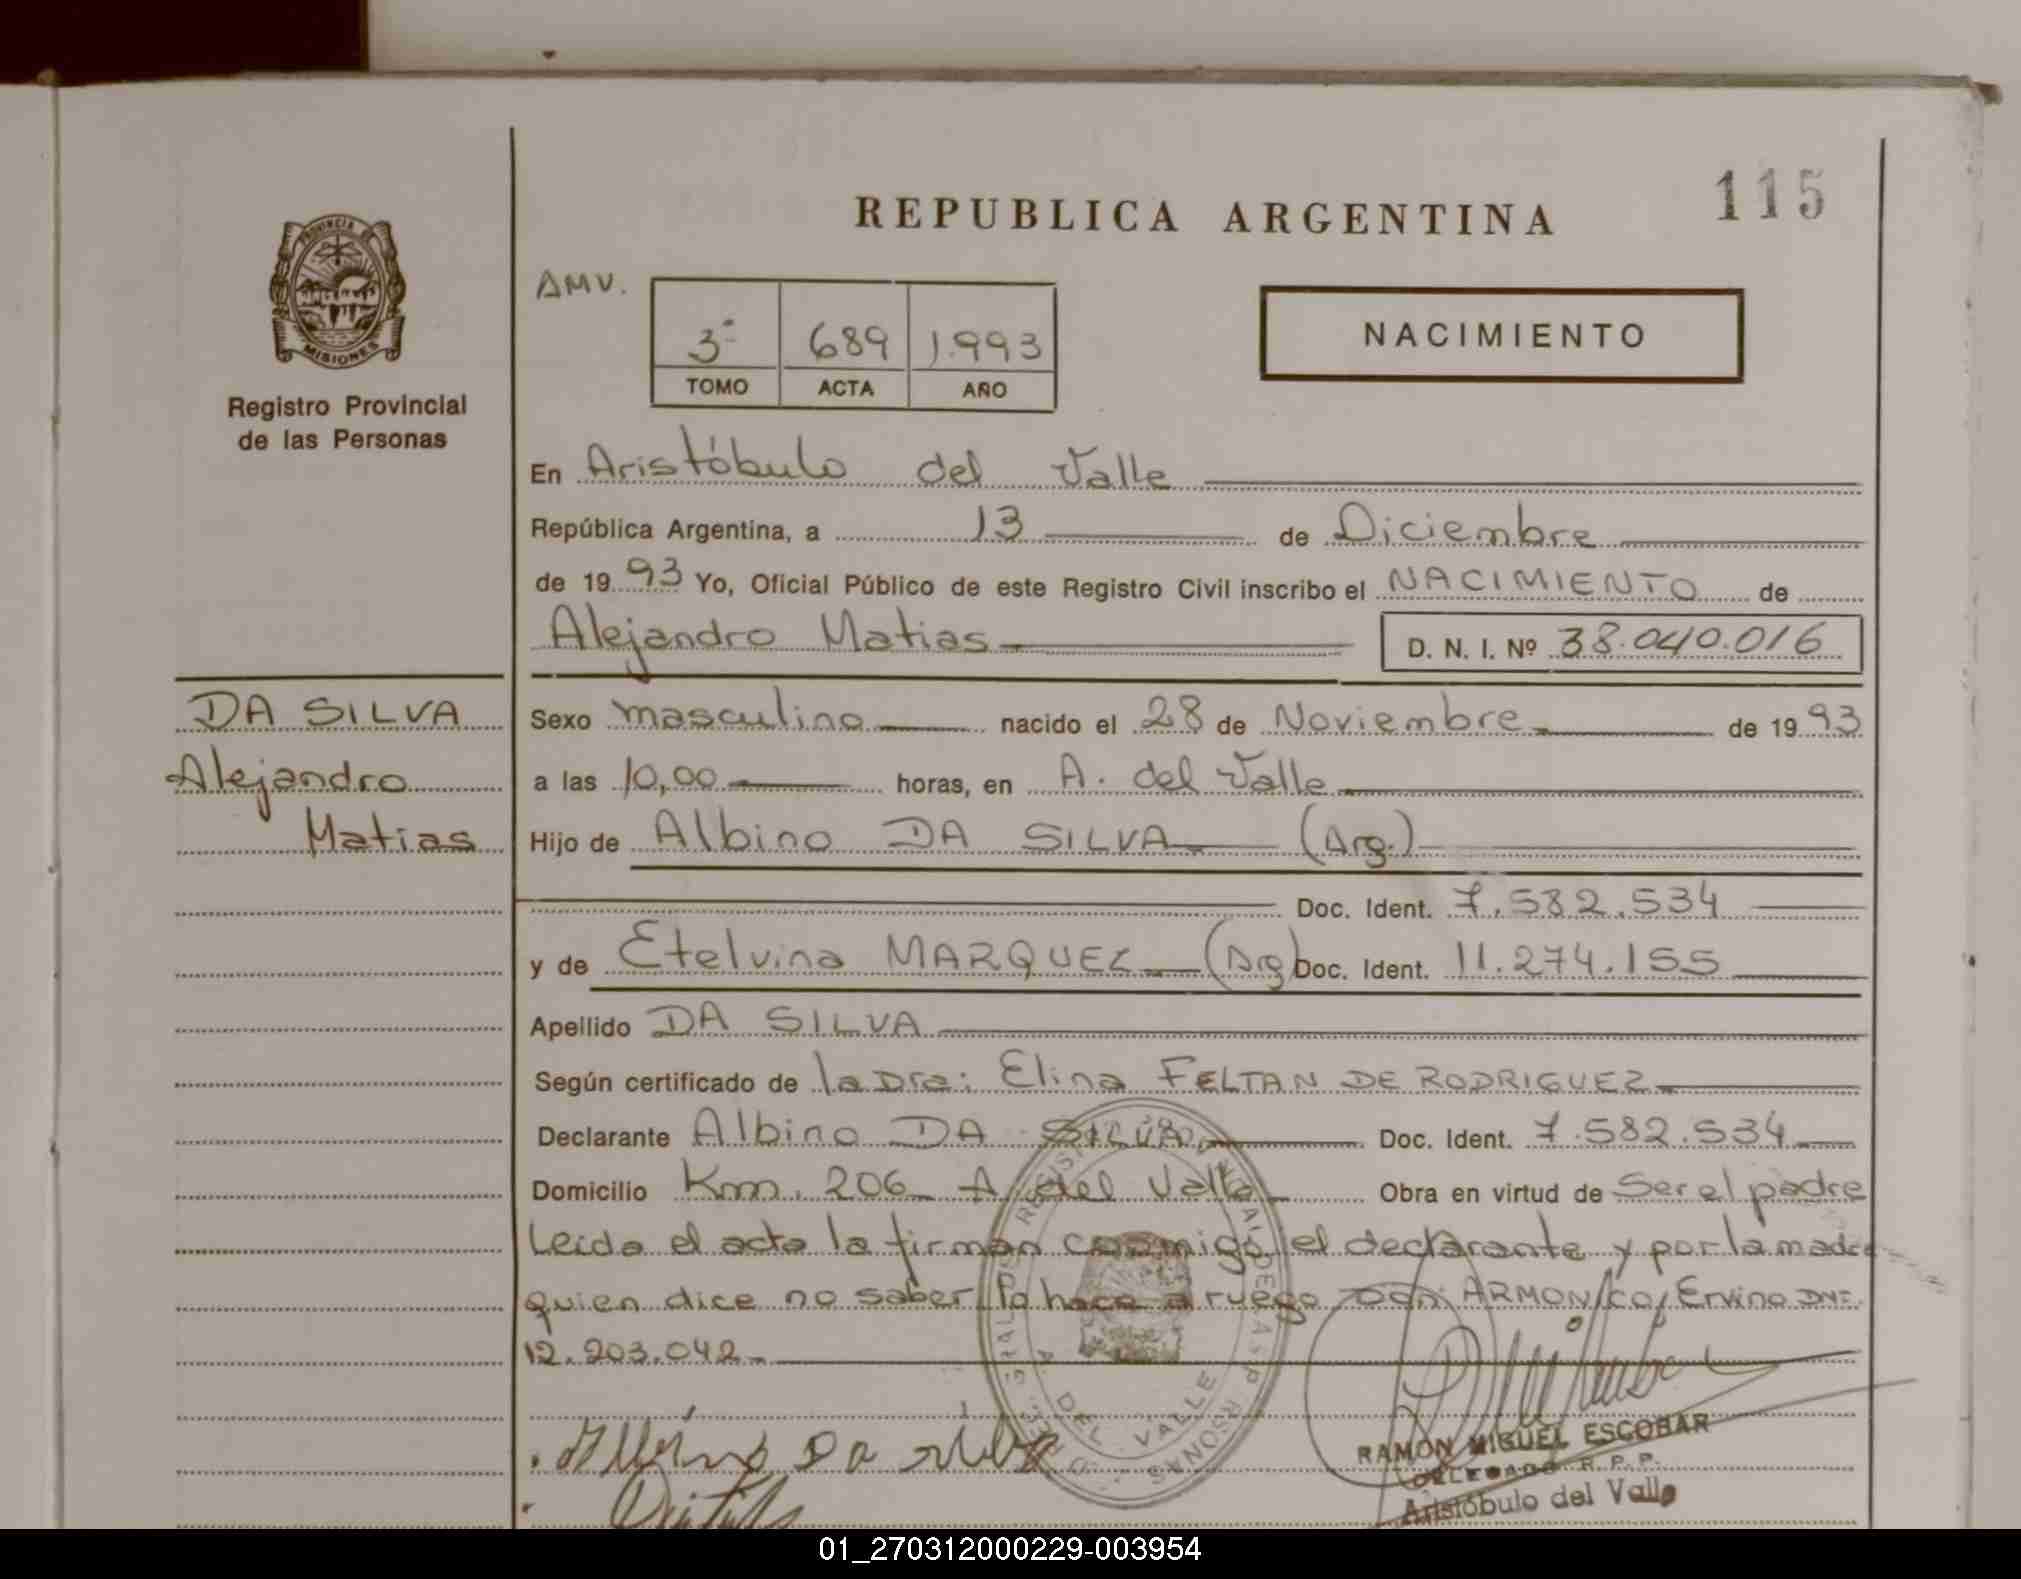 115
REPUBLICA ARGENTINA
PROVINCIA DE
MISIONES
Registro Provincial
de las Personas
AMV.
NACIMIENTO
3º 689 1.993
TOMO ACTA AÑO
En Aristóbulo del Valle
República Argentina, a 13 de Diciembre
de 1993 Yo, Oficial Público de este Registro Civil inscribo el NACIMIENTO de
Alejandro Matias D. N. I. Nº 38.040.016
DA SILVA
Alejandro
Matias
Sexo masculino nacido el 28 de Noviembre de 1993
a las 10,00 horas, en A. del Valle
Hijo de Albino DA SILVA (Arg.)
Doc. Ident. 7.582.534
y de Etelvina MARQUEZ (Arg) Doc. Ident. 11.274.155
Apellido DA SILVA
Según certificado de la Dra: Elina FELTAN DE RODRIGUEZ
Declarante Albino DA SILVA Doc. Ident. 7.582.534
Domicilio Km. 206 A. del Valle Obra en virtud de Ser el padre
Leida el acta la firman conmigo el declarante y por la madre
quien dice no saber lo hace a ruego Don ARMONICO, Ervino DNI
12.203.042
A. DEL VALLE
Albino Da silva
RAMON MIGUEL ESCOBAR
DELEGADO R. P. P.
Aristóbulo del Valle
01_270312000229-003954